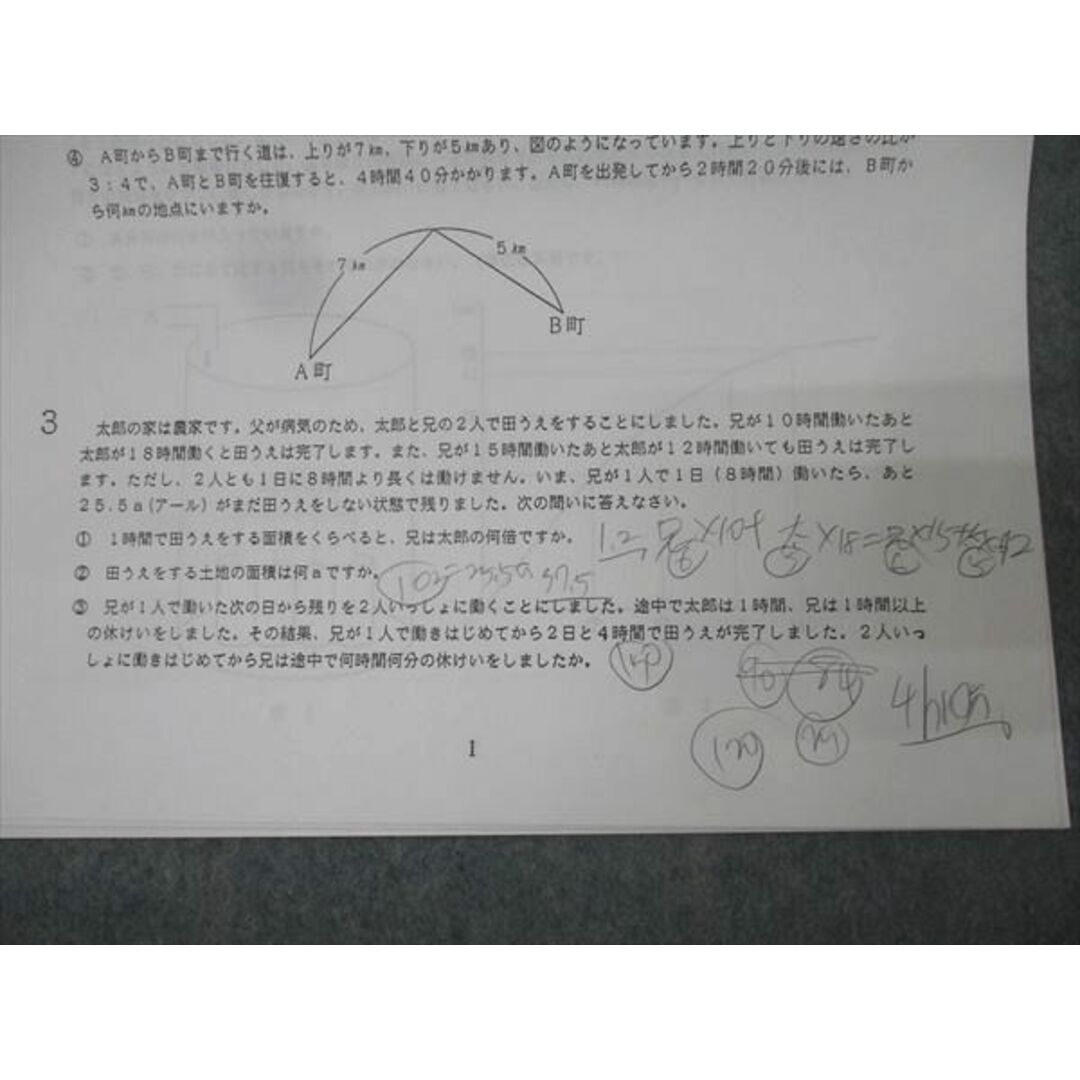 ④ A町からB町まで行く道は、上りが7㎞、下りが5㎞あり、図のようになっています。上りと下りの速さの比が
3:4で、A町とB町を往復すると、4時間40分かかります。A町を出発してから2時間20分後には、B町か
ら何㎞の地点にいますか。
7㎞
5㎞
B町
A町
3 太郎の家は農家です。父が病気のため、太郎と兄の2人で田うえをすることにしました。兄が10時間働いたあと
太郎が18時間働くと田うえは完了します。また、兄が15時間働いたあと太郎が12時間働いても田うえは完了し
ます。ただし、2人とも1日に8時間より長くは働けません。いま、兄が1人で1日(8時間)働いたら、あと
25.5a(アール)がまだ田うえをしない状態で残りました。次の問いに答えなさい。
① 1時間で田うえをする面積をくらべると、兄は太郎の何倍ですか。
1.2 兄×10+太×18=兄×15+太×12
⑥ ⑤ ⑥ ⑤
② 田うえをする土地の面積は何aですか。
102=25.5a 37.5
③ 兄が1人で働いた次の日から残りを2人いっしょに働くことにしました。途中で太郎は1時間、兄は1時間以上
の休けいをしました。その結果、兄が1人で働きはじめてから2日と4時間で田うえが完了しました。2人いっ
しょに働きはじめてから兄は途中で何時間何分の休けいをしましたか。
1